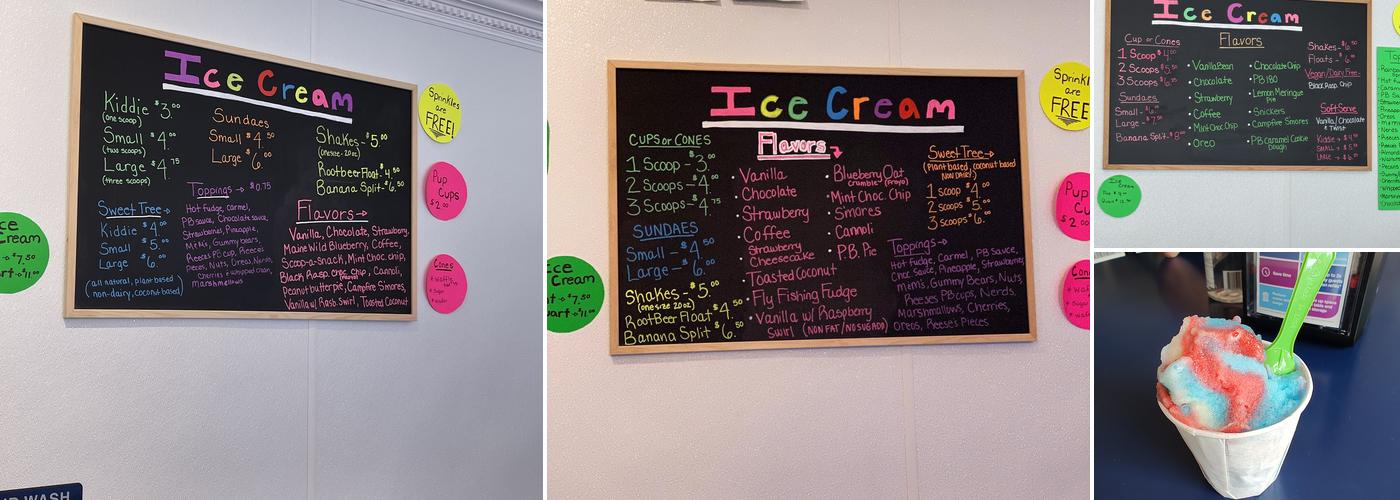 Ice Cream
Kiddie $3.00
(one scoop)
Small $4.00
(two scoops)
Large $4.75
(three scoops)
Sundaes
Small $4.50
Large $6.00
Shakes - $5.00
(one size - 20 oz)
Rootbeer Float $4.50
Banana Split - $6.50
Sweet Tree
Kiddie $4.00
Small $5.00
Large $6.00
(all natural, plant based
non-dairy, coconut based)
Toppings → $0.75
Hot fudge, carmel,
PB sauce, Chocolate sauce,
Strawberries, Pineapple,
M+Ms, Gummy bears,
Reeces PB cup, Reeces
pieces, Nuts, Oreos, Nerds,
Cherries + whipped cream,
marshmellows
Flavors →
Vanilla, Chocolate, Strawberry,
Maine Wild Blueberry, Coffee,
Scoop-a-Snack, Mint Choc chip,
Black Rasp. choc chip, Cannoli,
Peanut butter pie, Campfire Smores,
Vanilla w/ Rasb. Swirl, Toasted Coconut
Sprinkles
are
FREE!
Pup
Cups
$2.00
Cones
Cream
$7.50
$11.00
WASH
Ice Cream
CUPS or CONES
1 Scoop - $3.00
2 Scoops - $4.00
3 Scoops - $4.75
SUNDAES
Small - $4.50
Large - $6.00
Shakes - $5.00
(one size 20oz)
RootBeer Float $4.50
Banana Split $6.50
Flavors
• Vanilla
• Chocolate
• Strawberry
• Coffee
• Strawberry
Cheesecake
• Toasted Coconut
• Fly Fishing Fudge
• Vanilla w/ Raspberry
Swirl (NON FAT / NO SUGAR)
• Blueberry Oat
crumble (Froyo)
• Mint Choc. Chip
• Smores
• Cannoli
• P.B. Pie
Sweet Tree →
(Plant based, coconut based
NON DAIRY)
1 scoop $4.00
2 scoops $5.00
3 scoops $6.00
Toppings →
Hot fudge, Carmel, PB Sauce,
Choc Sauce, Pineapple, Strawberries,
m+m's, Gummy Bears, Nuts,
Reeses PB cups, Nerds,
Marshmallows, Cherries,
Oreos, Reese's Pieces
Sprinkl
are
FREE
Pup
Cu
$2.0
Ice
Cream
$7.50
$11.00
Ice Cream
Cup or Cones
1 Scoop
2 Scoops
3 Scoops
Sundaes
Small
Large
Banana Split
Flavors
• Vanilla Bean
• Chocolate
• Strawberry
• Coffee
• Mint Choc Chip
• Oreo
• Chocolate Chip
• PB 180
• Lemon Meringue
Pie
• Snickers
• Campfire Smores
• PB Caramel Cookie
Dough
Shakes - $6.50
Floats - $6.00
Vegan/Dairy Free
Black Rasp. Chip
Soft Serve
Vanilla/Chocolate
& Twist
Kiddie
Small
Large
Ice
Cream